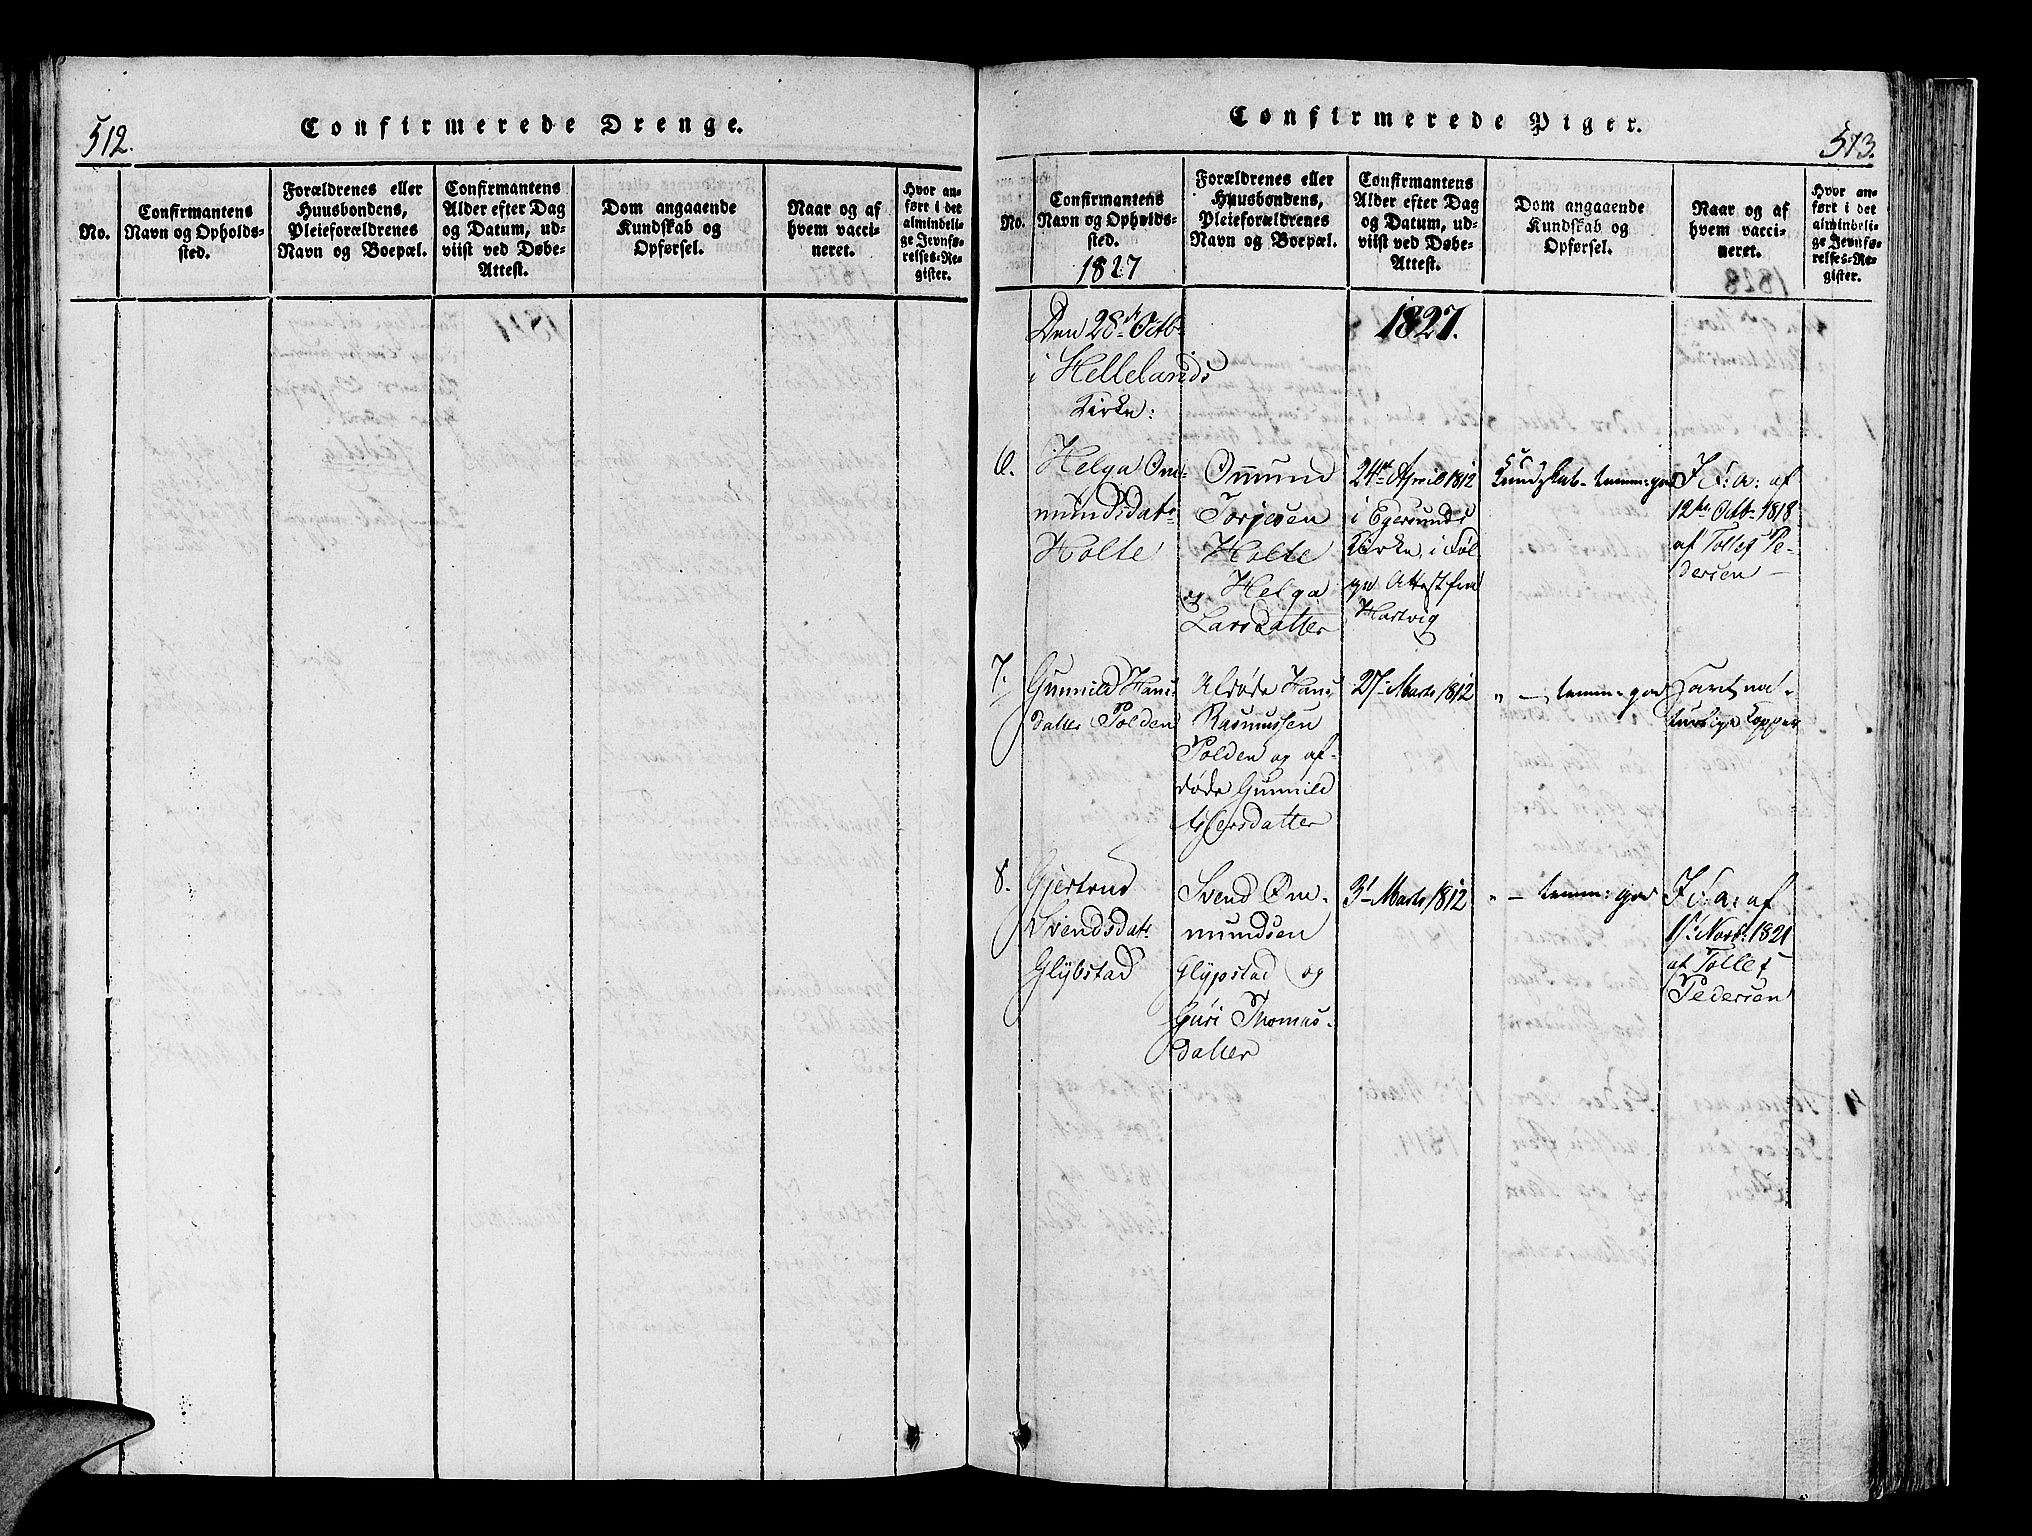 512.
Confirmerede Drenge.
No.
Confirmantens
Navn og Opholds-
sted.
Forældrenes eller
Huusbondens,
Pleieforældrenes
Navn og Boepæl.
Confirmantens
Alder efter Dag
og Datum, ud-
viist ved Døbe-
Attest.
Dom angaaende
Kundskab og
Opførsel.
Naar og af
hvem vacci-
neret.
Hvor an-
ført i det
almindeli-
ge Jevnfø-
relses-Re-
gister.
Confirmerede Piger.
513.
No.
Confirmantens
Navn og Opholds-
sted.
1827
Forældrenes eller
Huusbondens,
Pleieforældrenes
Navn og Boepæl.
Confirmantens
Alder efter Dag
og Datum, ud-
viist ved Døbe-
Attest.
Dom angaaende
Kundskab og
Opførsel.
Naar og af
hvem vacci-
neret.
Hvor an-
ført i det
almindeli-
ge Jevnfø-
relses-Re-
gister.
Den 28de Octb.
i Hellelands
Kirke:
1827.
6.
Helga Om-
mundsdatr
Holte
Ommund
Torjesen
Holte
og Helga
Larsdatter
24de April 1812
i Egersunds
Kirke, i Føl
ge Attest fra
Hartvig
Kundskab temm: god
J. A: a: af
12te Octb. 1818
af Tollef Pe-
dersen
7.
Gunnild Hans
datter Polden
Afdøde Hans
Rasmussen
Polden og af-
døde Gunnild
datter
27 Marts 1812
" — temm: god
havt na-
turlige Kopper
8.
Gjertrud
Svendsdatr
Glÿbstad
Svend Om-
mundsen
Glÿpstad og
Guri Thomas-
datter
3d Marts 1812
" — temm: god
J. A: a: af
Novb. 1821
af Tollef
Pedersen